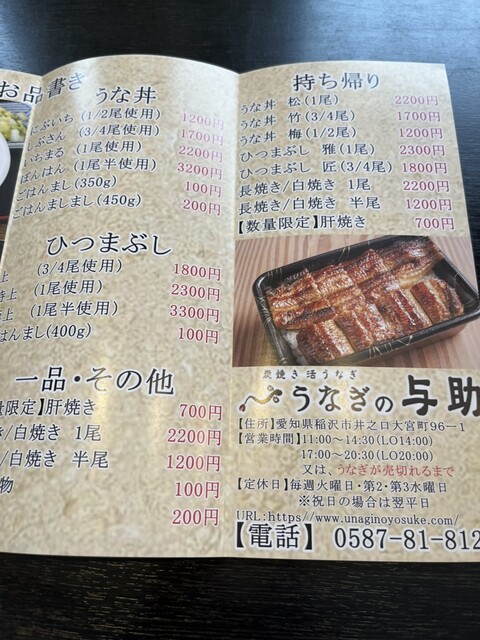 お品書き
うな丼
にぶいち (1/2尾使用) 1200円
しぶさん (3/4尾使用) 1700円
いちまる (1尾使用) 2200円
ばんはん (1尾半使用) 3200円
ごはんまし(350g) 100円
ごはんましまし(450g) 200円
ひつまぶし
上 (3/4尾使用) 1800円
特上 (1尾使用) 2300円
上 (1尾半使用) 3300円
はんまし(400g) 100円
一品・その他
量限定】肝焼き 700円
き/白焼き 1尾 2200円
/白焼き 半尾 1200円
物 100円
200円
持ち帰り
うな丼 松(1尾) 2200円
うな丼 竹(3/4尾) 1700円
うな丼 梅(1/2尾) 1200円
ひつまぶし 雅(1尾) 2300円
ひつまぶし 匠(3/4尾) 1800円
長焼き/白焼き 1尾 2200円
長焼き/白焼き 半尾 1200円
【数量限定】肝焼き 700円
炭焼き活うなぎ
うなぎの与助
【住所】愛知県稲沢市井之口大宮町96−1
【営業時間】11:00〜14:30(LO14:00)
17:00〜20:30(LO20:00)
又は、うなぎが売切れるまで
【定休日】毎週火曜日・第2・第3水曜日
※祝日の場合は翌平日
URL:https//www.unaginoyosuke.com/
【電話】 0587-81-812